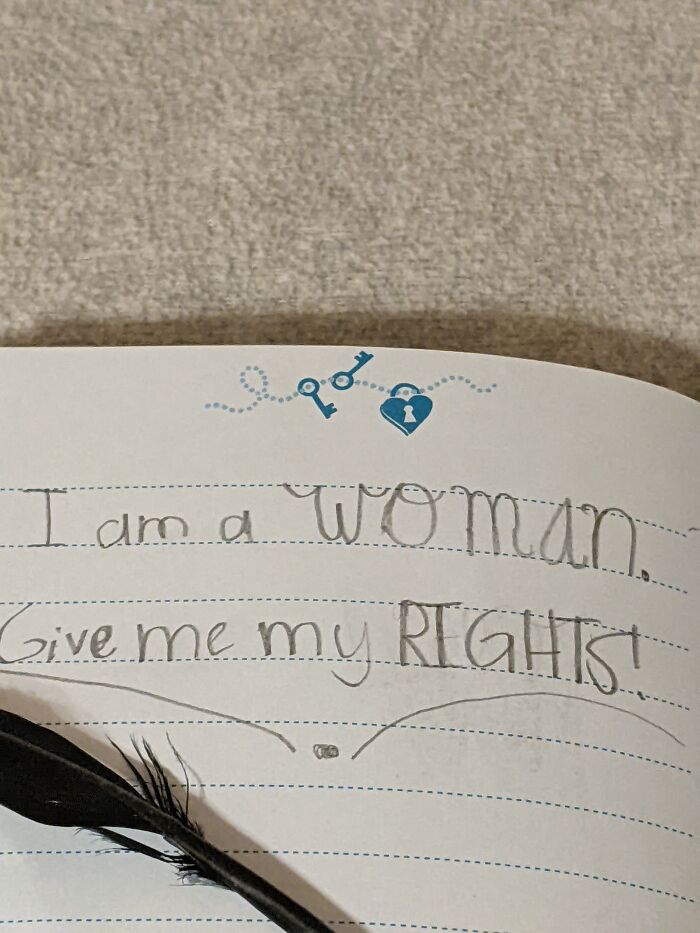 I am a WOMAN.
Give me my RIGHTS!